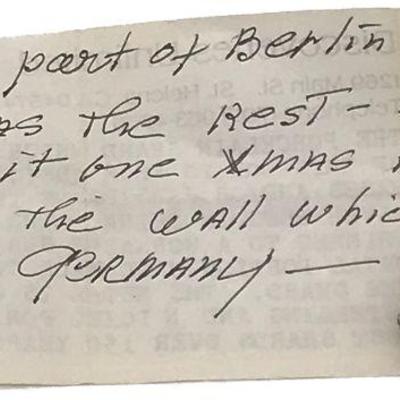 part of Berlin
as the REST-
it one Xmas
the wall whic
GERMANY—